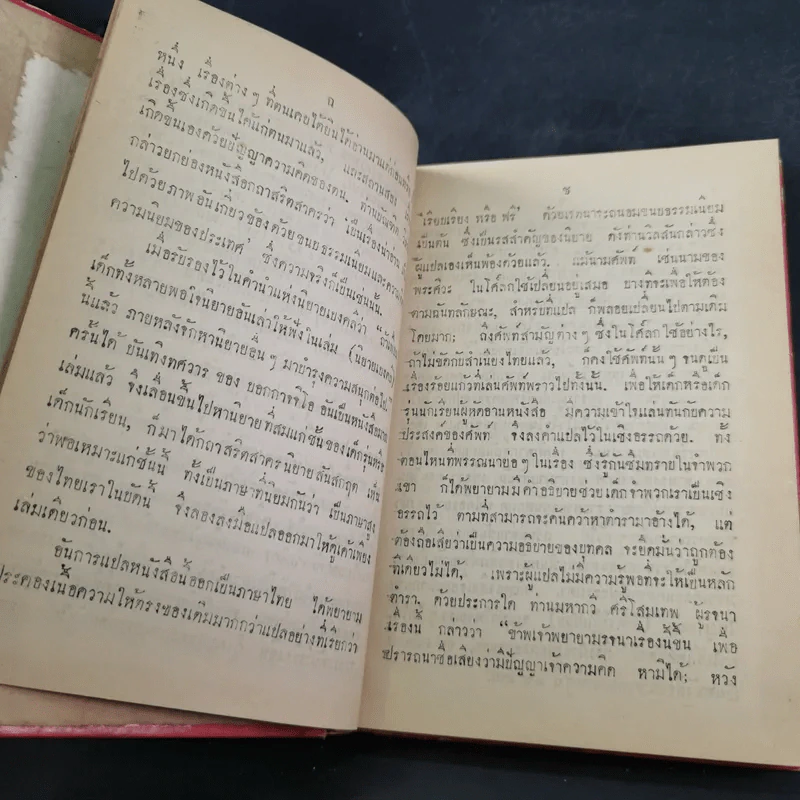 ถ
หนึ่ง เรื่องต่าง ๆ ที่ตนเคยได้ยินได้อ่านมาแต่ก่อน
เรื่องซึ่งเกิดขึ้นได้แก่ตนมาแล้ว, และสถานสอง
เกิดขึ้นเองด้วยปัญญาความคิดของตน. ท่านบัณฑิต
กล่าวยกย่องหนังสือกถาสริตสาครว่า 'เป็นเรื่องน่าอ่าน
ไปด้วยภาพอันเกี่ยวข้องด้วยขนบธรรมเนียมและ
ความนิยมของประเทศ' ซึ่งความจริงก็เป็นเช่นนั้น.
เมื่อรับรองไว้ในคำนำแห่งนิยายเบงคลีว่า ถ้า
เด็กทั้งหลายพอใจนิยายอันเล่าให้ฟังในเล่ม (นิยายเบงคลี)
นี้แล้ว ภายหลังจักหานิยายอื่น ๆ มาบำรุงความสนุกต่อไป.
ครั้นได้ บันเทิงทศวาร ของ บอกกาจิโอ อันเป็นหนังสือ
เล่มแล้ว จึงเลื่อนขึ้นไปหานิยายที่สมแก่ชั้นของเด็กรุ่น
เด็กนักเรียน, ก็มาได้กถาสริตสาครนิยายสันสกฤต เห็น
ว่าพอเหมาะแก่ชั้นนี้ ทั้งเป็นภาษาที่นิยมกันว่า เป็นภาษาสูง
ของไทยเราในบัดนี้ จึงลองลงมือแปลออกมาให้ดูเค้าเพียง
เล่มเดียวก่อน.
อันการแปลหนังสือนี้ออกเป็นภาษาไทย ได้พยายาม
ประคองเนื้อความให้ตรงของเดิมมากกว่าแปลอย่างที่เรียกว่า
ช
'เรียบเรียง หรือ ฟรี' ด้วยเจตนาจะถนอมขนบธรรมเนียม
เป็นต้น ซึ่งเป็นรสสำคัญของนิยาย ดังท่านวิลสันกล่าวซึ่ง
ผู้แปลเองเห็นพ้องด้วยแล้ว. แม้นามศัพท์ เช่นนามของ
พระศิวะ ในโศลกใช้เปลี่ยนอยู่เสมอ บางทีจะเพื่อให้ต้อง
ตามฉันทลักษณะ, สำหรับที่แปล ก็พลอยเปลี่ยนไปตามเดิม
โดยมาก; ถึงศัพท์สามัญต่าง ๆ ซึ่งในโศลกใช้อย่างไร,
ถ้าไม่ขัดกับสำเนียงไทยแล้ว, ก็คงใช้ศัพท์นั้น ๆ จนดูเป็น
เรื่องร้อยแก้วที่เล่นศัพท์พราวไปทั้งนั้น. เพื่อให้เด็กหรือเด็ก
รุ่นนักเรียนผู้หัดอ่านหนังสือ มีความเข้าใจแล่นทันกับความ
ประสงค์ของศัพท์ จึงลงคำแปลไว้ในเชิงอรรถด้วย. ทั้ง
ตอนไหนที่พรรณนาย่อ ๆ ในเรื่อง ซึ่งรู้กันซึมทราบในจำพวก
เขา ก็ได้พยายามมีคำอธิบายช่วยเด็กจำพวกเราเป็นเชิง
อรรถไว้ ตามที่สามารถจะค้นคว้าหาตำรามาอ้างได้, แต่
ต้องถือเสียว่าเป็นความอธิบายของบุคคล จะยึดมั่นว่าถูกต้อง
ทีเดียวไม่ได้, เพราะผู้แปลไม่มีความรู้พอที่จะให้เป็นหลัก
ตำรา. ด้วยประการใด ท่านมหากวี ศรีโสมเทพ ผู้รจนา
เรื่องนี้ กล่าวว่า "ข้าพเจ้าพยายามรจนาเรื่องนี้ขึ้น เพื่อ
ปรารถนาชื่อเสียงว่ามีปัญญาเจ้าความคิด หามิได้; หวัง